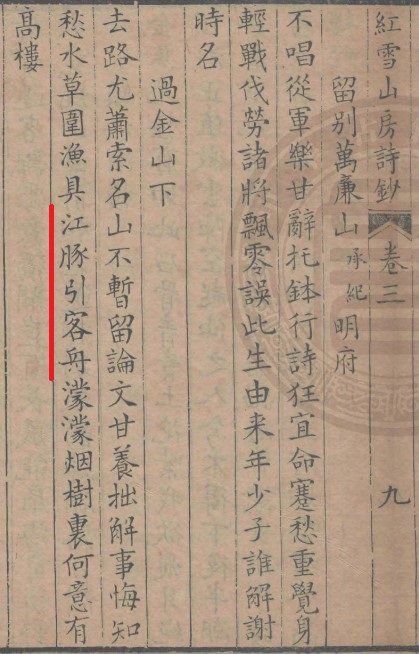 紅雪山房詩鈔 卷三 九
留別萬廉山承紀明府
不唱從軍樂甘辭托鉢行詩狂宜命蹇愁重覺身
輕戰伐勞諸將飄零誤此生由来年少子誰解謝
時名
過金山下
去路尤蕭索名山不暫留論文甘養拙解事悔知
愁水草圍漁具江豚引客舟濛濛烟樹裏何意有
高樓